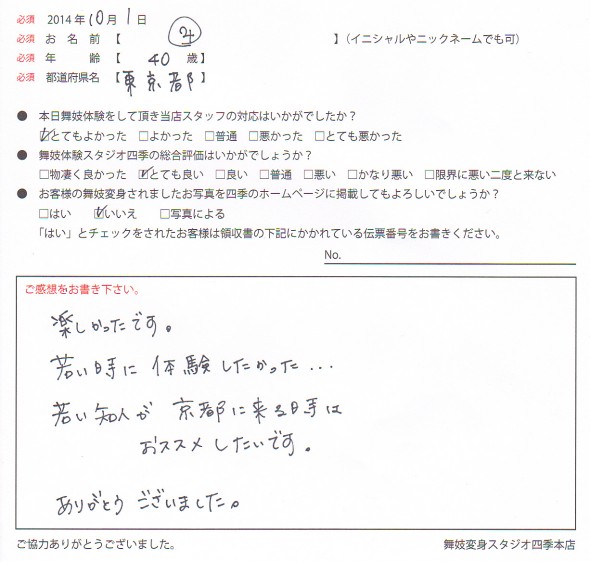 必須 2014年10月1日
必須 お名前【 】（イニシャルやニックネームでも可）
必須 年 齢【 40 歳】
必須 都道府県名【東京都】
● 本日舞妓体験をして頂き当店スタッフの対応はいかがでしたか？
☑とてもよかった □よかった □普通 □悪かった □とても悪かった
● 舞妓体験スタジオ四季の総合評価はいかがでしょうか？
□物凄く良かった ☑とても良い □良い □普通 □悪い □かなり悪い □限界に悪い二度と来ない
● お客様の舞妓変身されましたお写真を四季のホームページに掲載してもよろしいでしょうか？
□はい ☑いいえ □写真による
「はい」とチェックをされたお客様は領収書の下記にかかれている伝票番号をお書きください。
No.
ご感想をお書き下さい。
楽しかったです。
若い時に 体験したかった...
若い知人が 京都に来る時は
おススメしたいです。
ありがとう ございました。
ご協力ありがとうございました。 舞妓変身スタジオ四季本店